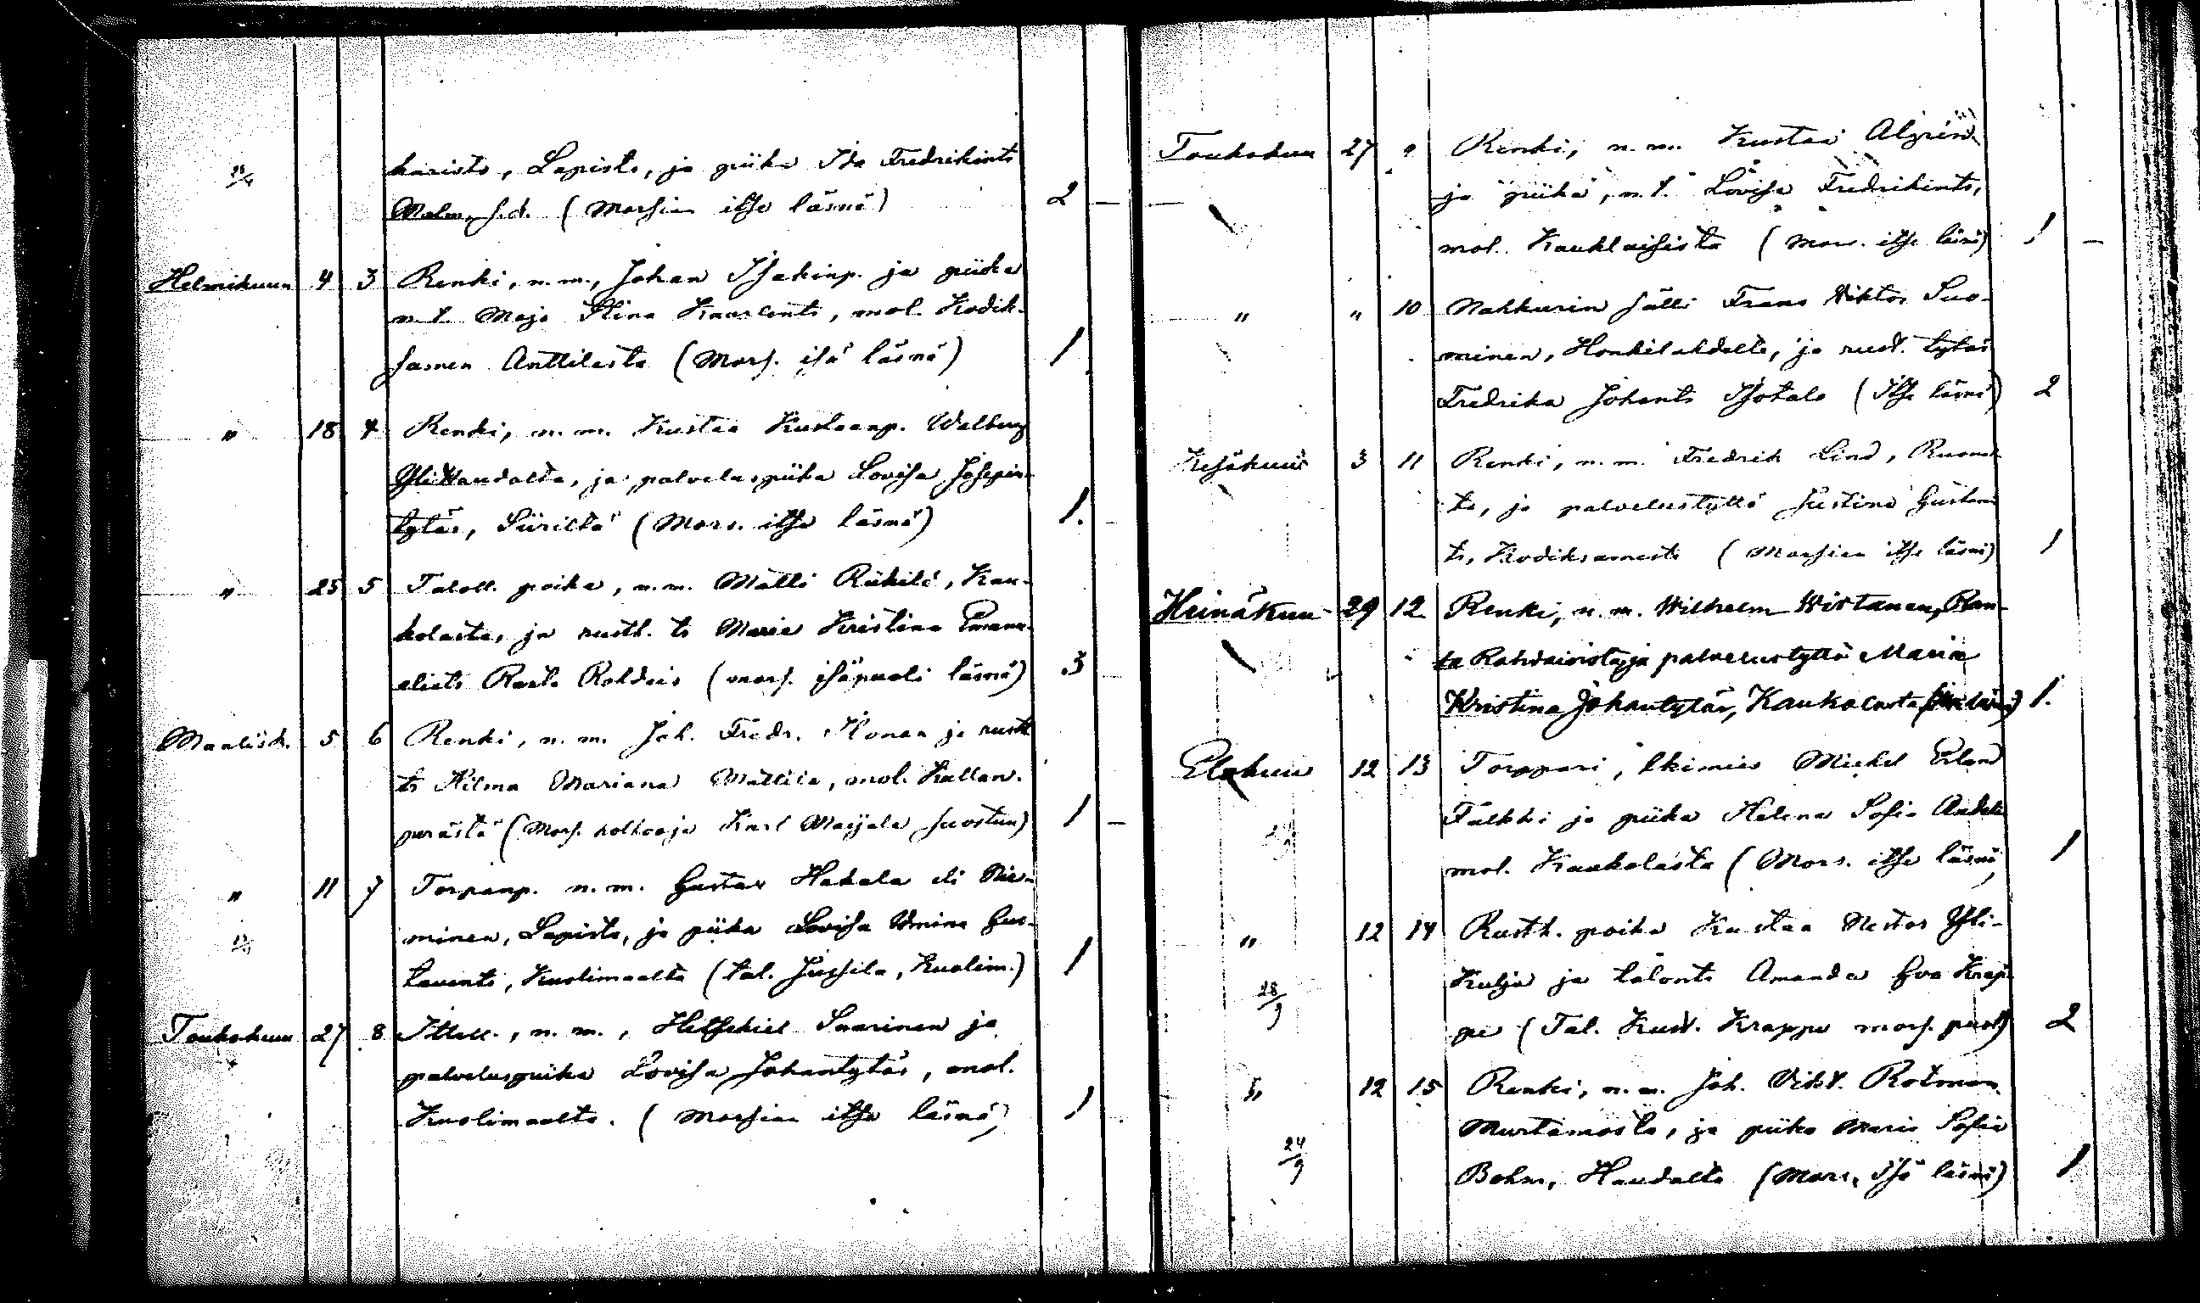 karists, Lapista, ja piika Ida Fredrikints
Malm, s.d. (Morsian itse läsnä) 2 —
Helmikuun 4 3 Renki, n.m., Johan Isakinp. ja piika
n.t. Maja Stina Kaarlents, mol. Kodik-
samen Anttilasta (Mors. isä läsnä) 1
" 18 4 Renki, n.m. Kustaa Kustaanp. Walberg
Yli Haudalta, ja palveluspiika Lovisa Josepin-
tytär, Siiriltä (Mors. itse läsnä) 1.
" 25 5 Taloll. poika, n.m. Matti Riikilä, Kau-
kolasta, ja rusth. ts Maria Kristina Emanu-
elints Rohdais (mors. isäpuoli läsnä) 3
Maalisk. 5 6 Renki, n.m. Joh. Fredr. ja rusth
ts Hilma Mariana Mattila, mol. Kullan-
perästä (Mors. holhooja Karl Marjala suostuu) 1 —
" 11 7 Torpanp. n.m. Gustav Hakala eli
minen, Lapista, ja piika Lovisa Wmina Gus-
tavints, Kuolimaalta (tal. Jussila, Kuolim.) 1
Toukokuun 27 8 Ittell., n.m., Hetsekiel Saarinen ja
palveluspiika Lovisa Johantytär, mol.
Kuolimaalta. (Morsian itse läsnä) 1
Toukokuun 27 9 Renki, n.m. Kustaa Algrén
ja piika, n.t. Lovisa Fredrikints,
mol. Kauklaisista (Mors. itse läsnä) 1 —
" " 10 Nahkurin sälli Frans Viktor Suo-
minen, Honkilahdelta, ja rust. tytär
Fredrika Johants Isotalo (Itse läsnä) 2
Kesäkuun 3 11 Renki, n.m. Fredrik Lind,
ta, ja palvelustyttö Justina Gustavs
ts, Kodiksamesta (Morsian itse läsnä) 1
Heinäkuu 29 12 Renki, n.m. Wilhelm Wirtanen, Ran-
ta Rohdaisista, ja palvelustyttö Maria
Kristina Johantytär, Kaukolasta 1.
Elokuu 12 13 Torppari, lkimies Mickel
Falkki ja piika Helena Sofia
mol. Kaukolasta (Mors. itse läsnä) 1
" 12 14 Rusth. poika Kustaa Nestor Yli-
Kulja ja talonts Amanda Eva Krap-
28/9 pe (Tal. Kust. Krappe mors. puol) 2
" 12 15 Renki, n.m. Joh. Vikt. Rotman
Murtamosta, ja piika Maria Sofia
24/9 Bohm, Haudalta (Mors. Isä läsnä) 1